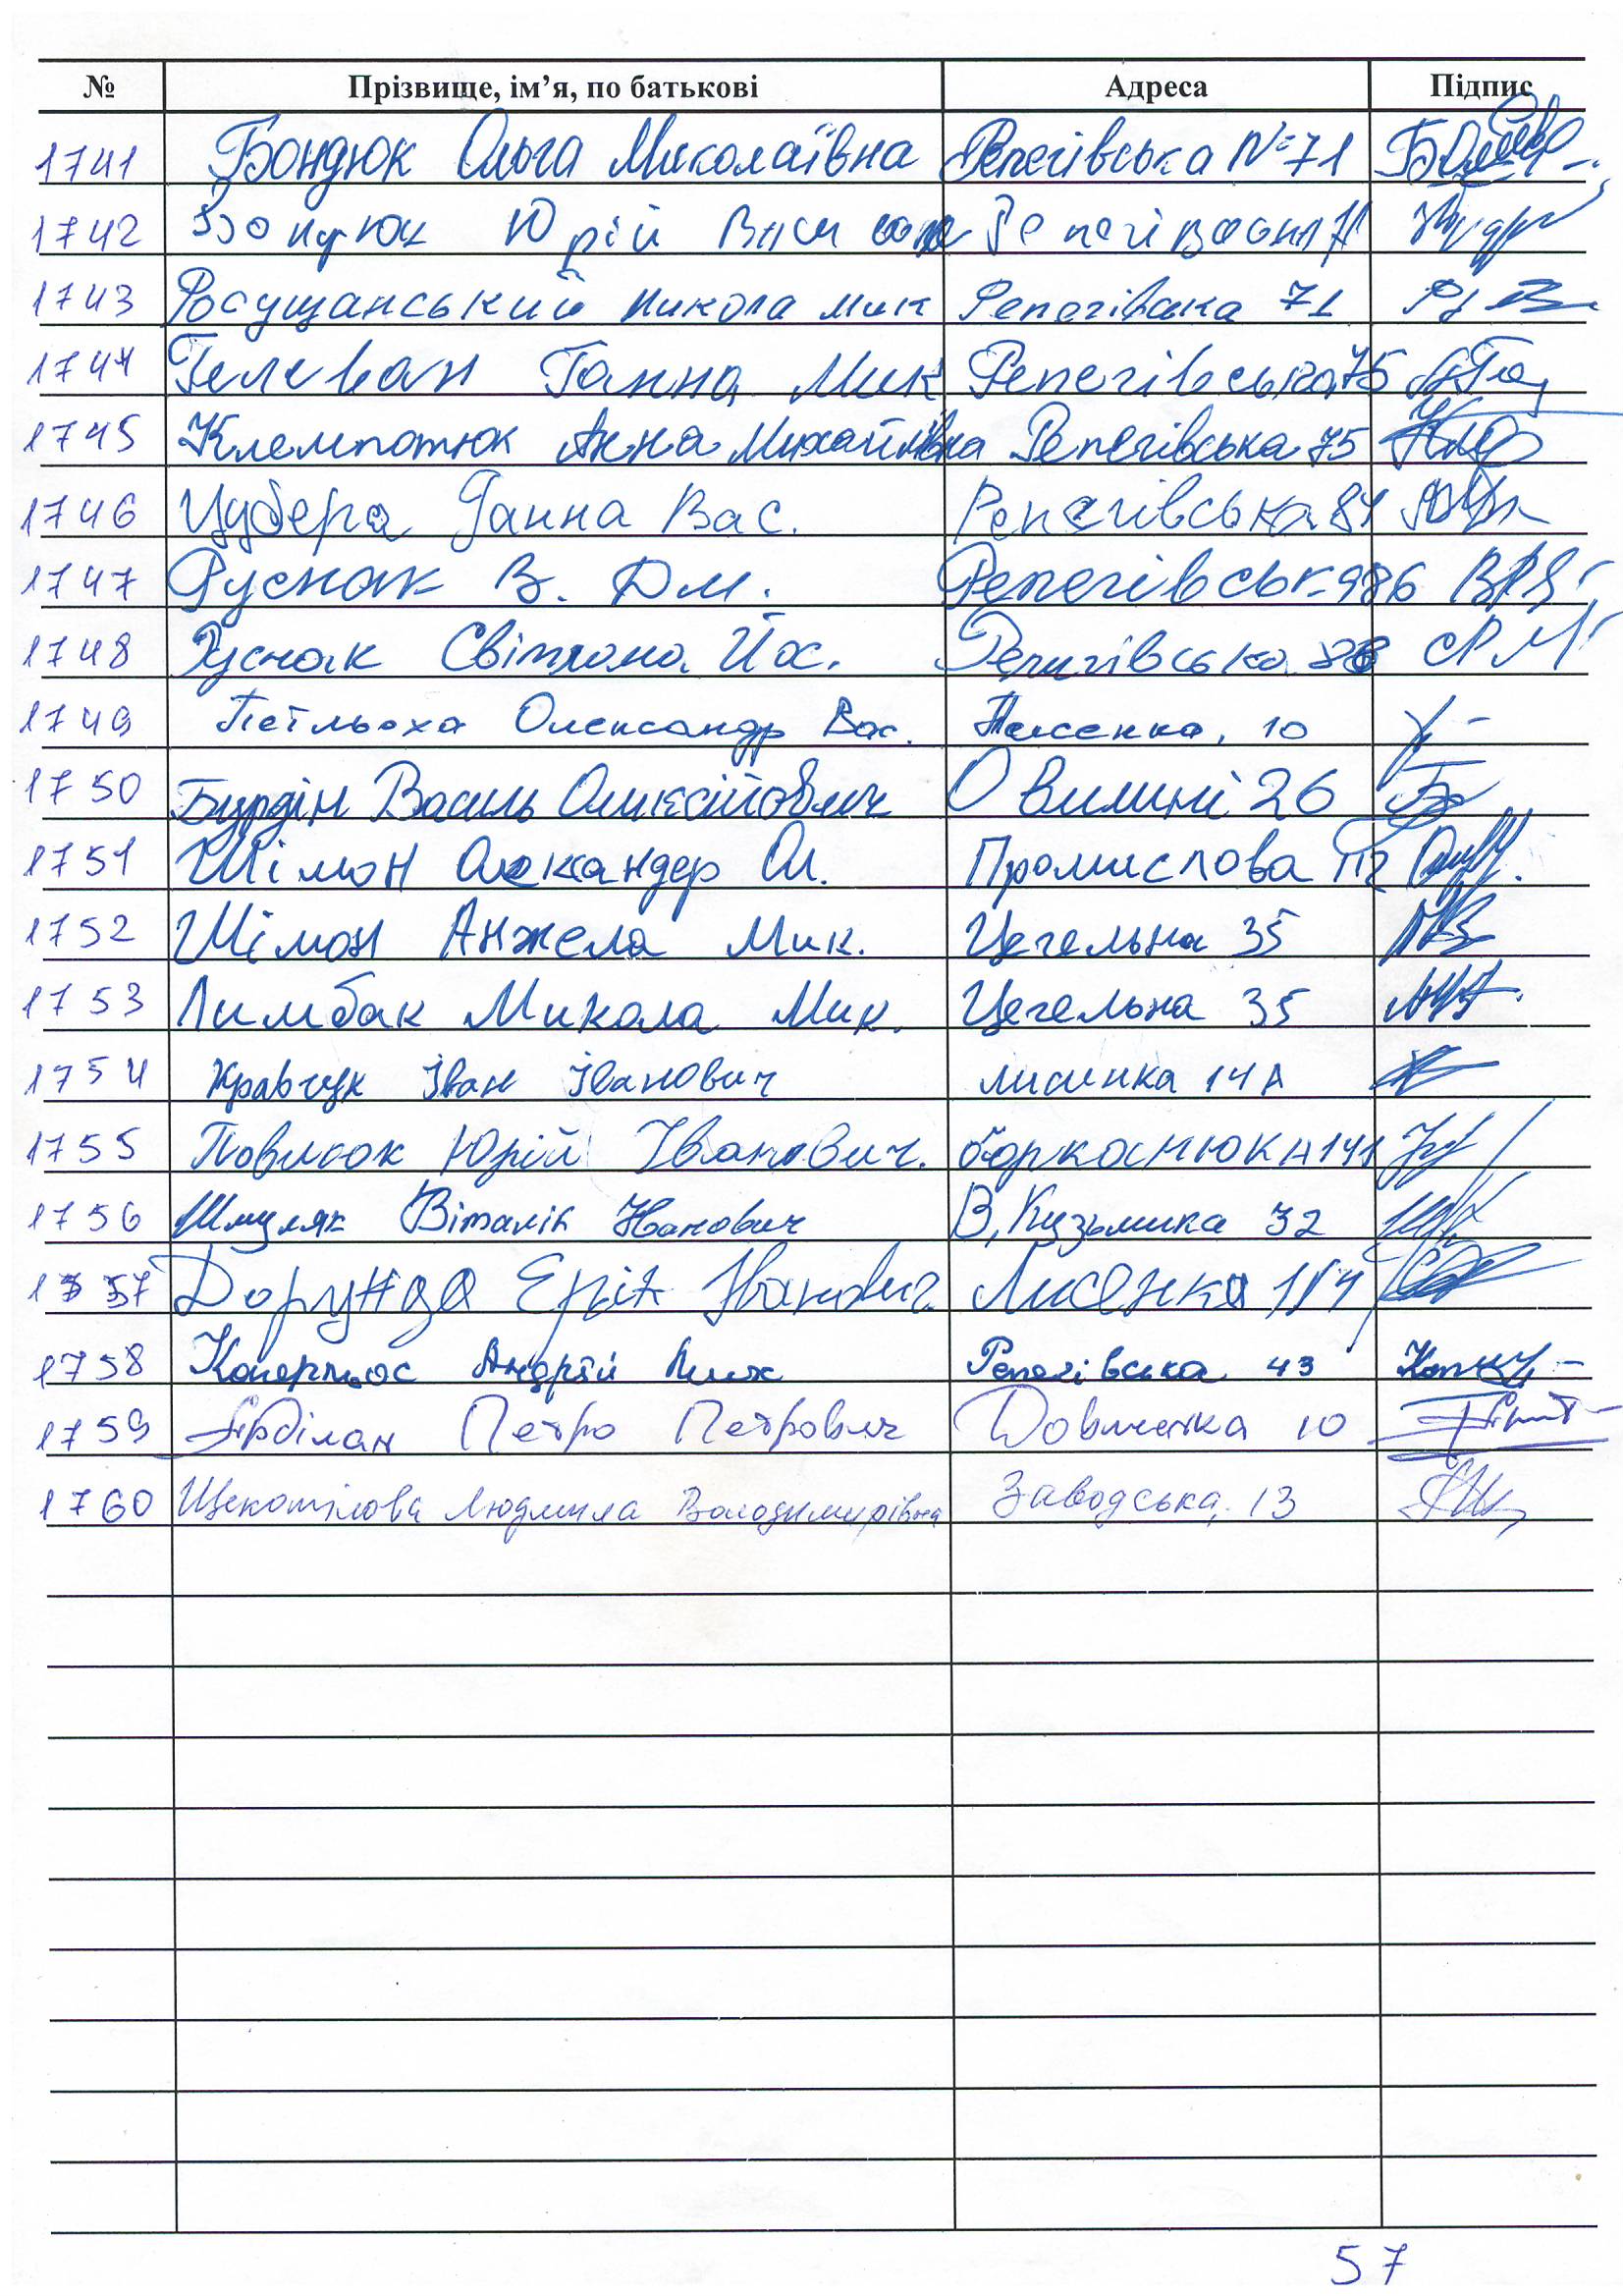 № Прізвище, ім’я, по батькові Адреса Підпис
1741 Бондюк Ольга Миколаївна Репегівська №71
1742 Юрій
1743 Росущанський Микола Мик Репегівська 71
1744 Гелеван Ганна Мик Репегівська 75
1745 Клемпотюк Анна Михайлівна Репегівська 75
1746 Цубера Ганна Вас. Репегівська 81
1747 Руснак В. Дм. Репегівська 86
1748 Руснак Світлана Йос.
1749 Петльоха Олександр Вас. 10
1750 Бурдін Василь О Вилині 26
1751 Шімон Олександер Ол. Промислова
1752 Шімон Анжела Мик. Цегельна 35
1753 Лимбак Микола Мик. Цегельна 35
1754 Кравчук Іван Іванович лисинка 14 А
1755 Павлюк Юрій Іванович.
1756 Шмуляк Віталій Іванович В, Кузьмика 32
1757 Іванович. Лисенка
1758 Андрій Репегівська 43
1759 Петро Петрович Довженка 10
1760 Щекотілова Людмила Володимирівна Заводська, 13
57